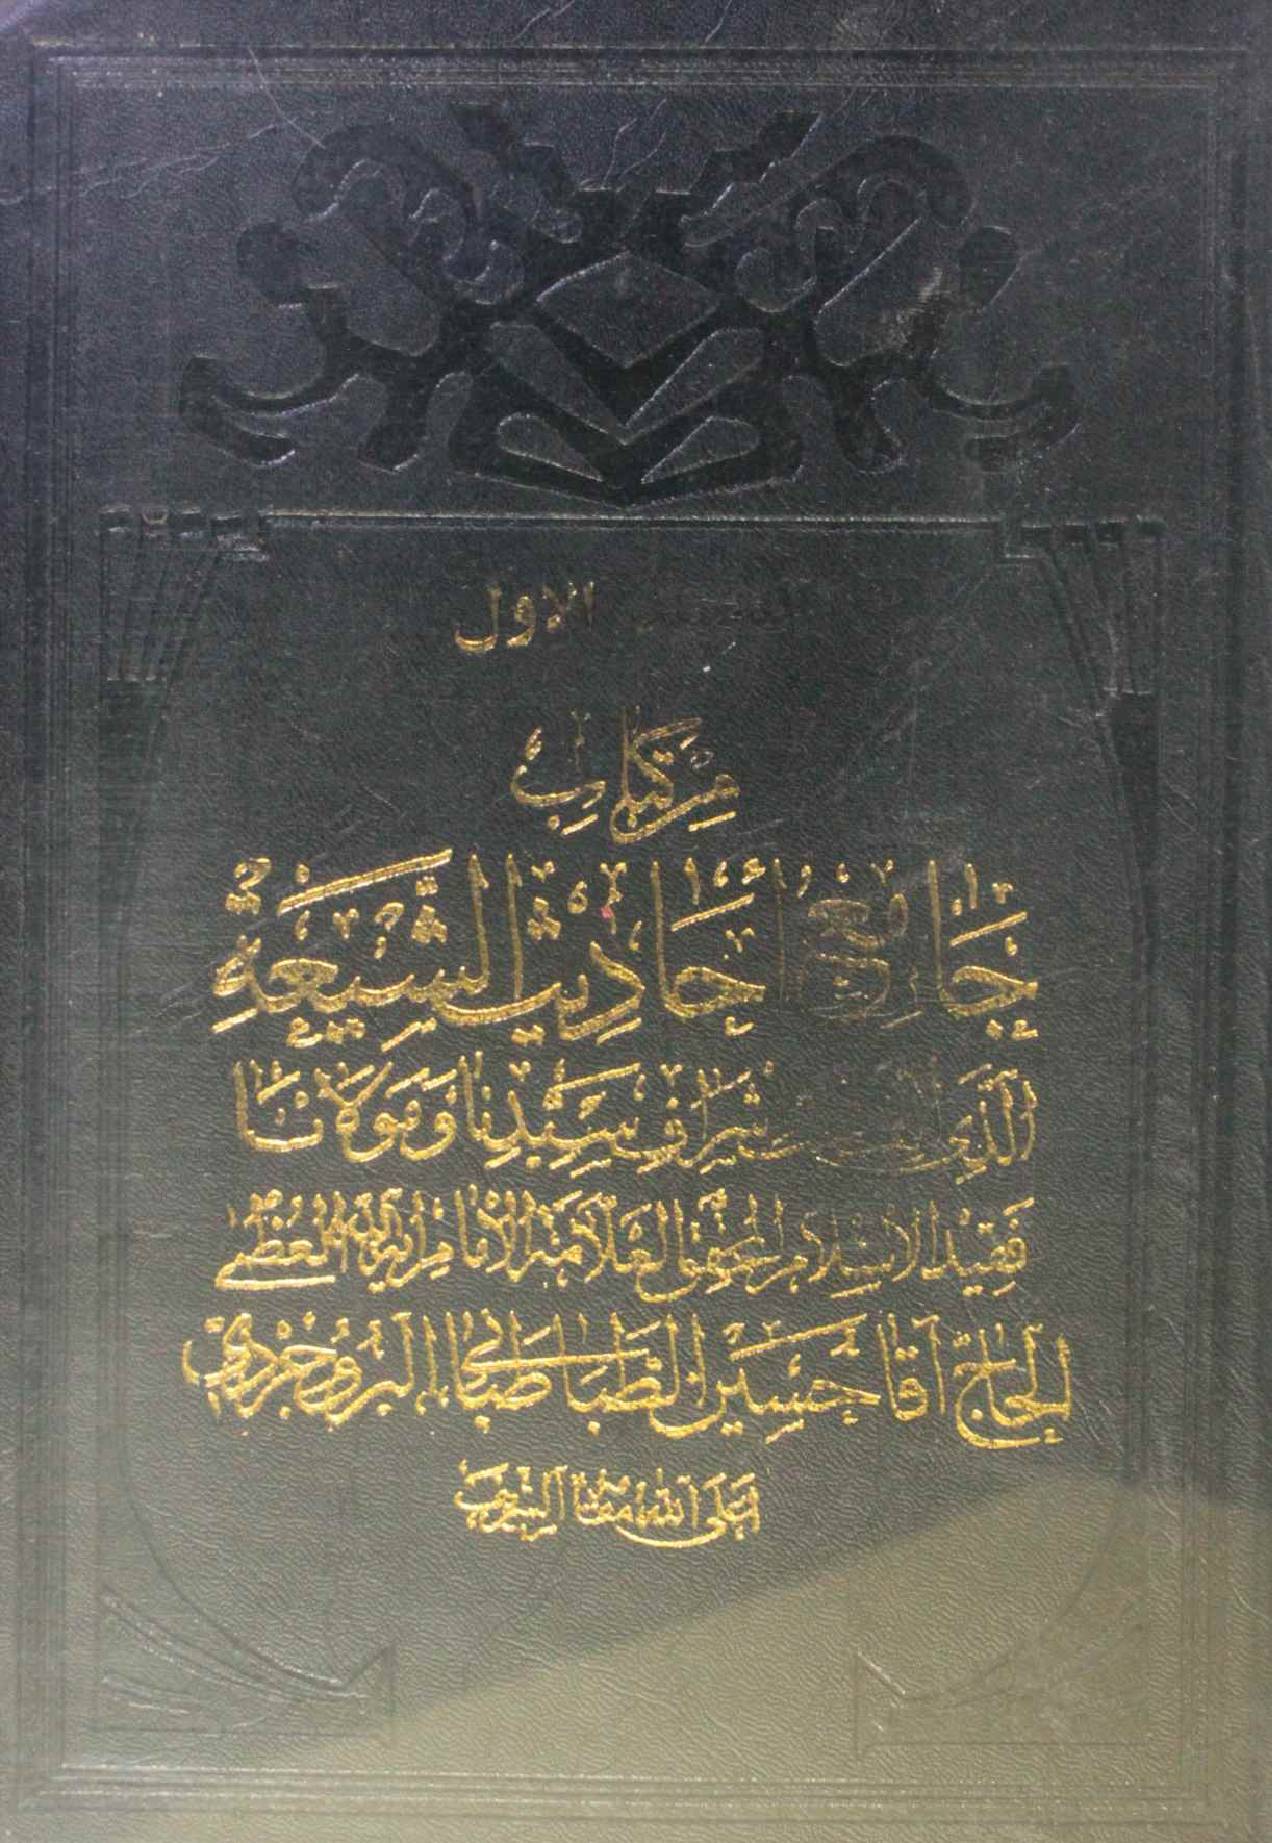 الاول
من كتاب
جَامِع أَحَادِيثِ الشِّيعَةِ
الَّذِي شَرَافِ سَيِّدِنَا وَمَوْلَانَا
فَقِيدُ الاسْلَامِ المُحَقِّق العَلَّامَةُ الاِمَامِ آيَةِ اللهِ العُظْمىٰ
الحَاجّ آقَا حُسَيْن الطَّبَاطَبَائِي البُرُوجَرْدِي
أَعْلَى اللهُ مَقَامَهُ الشَّرِيفَ